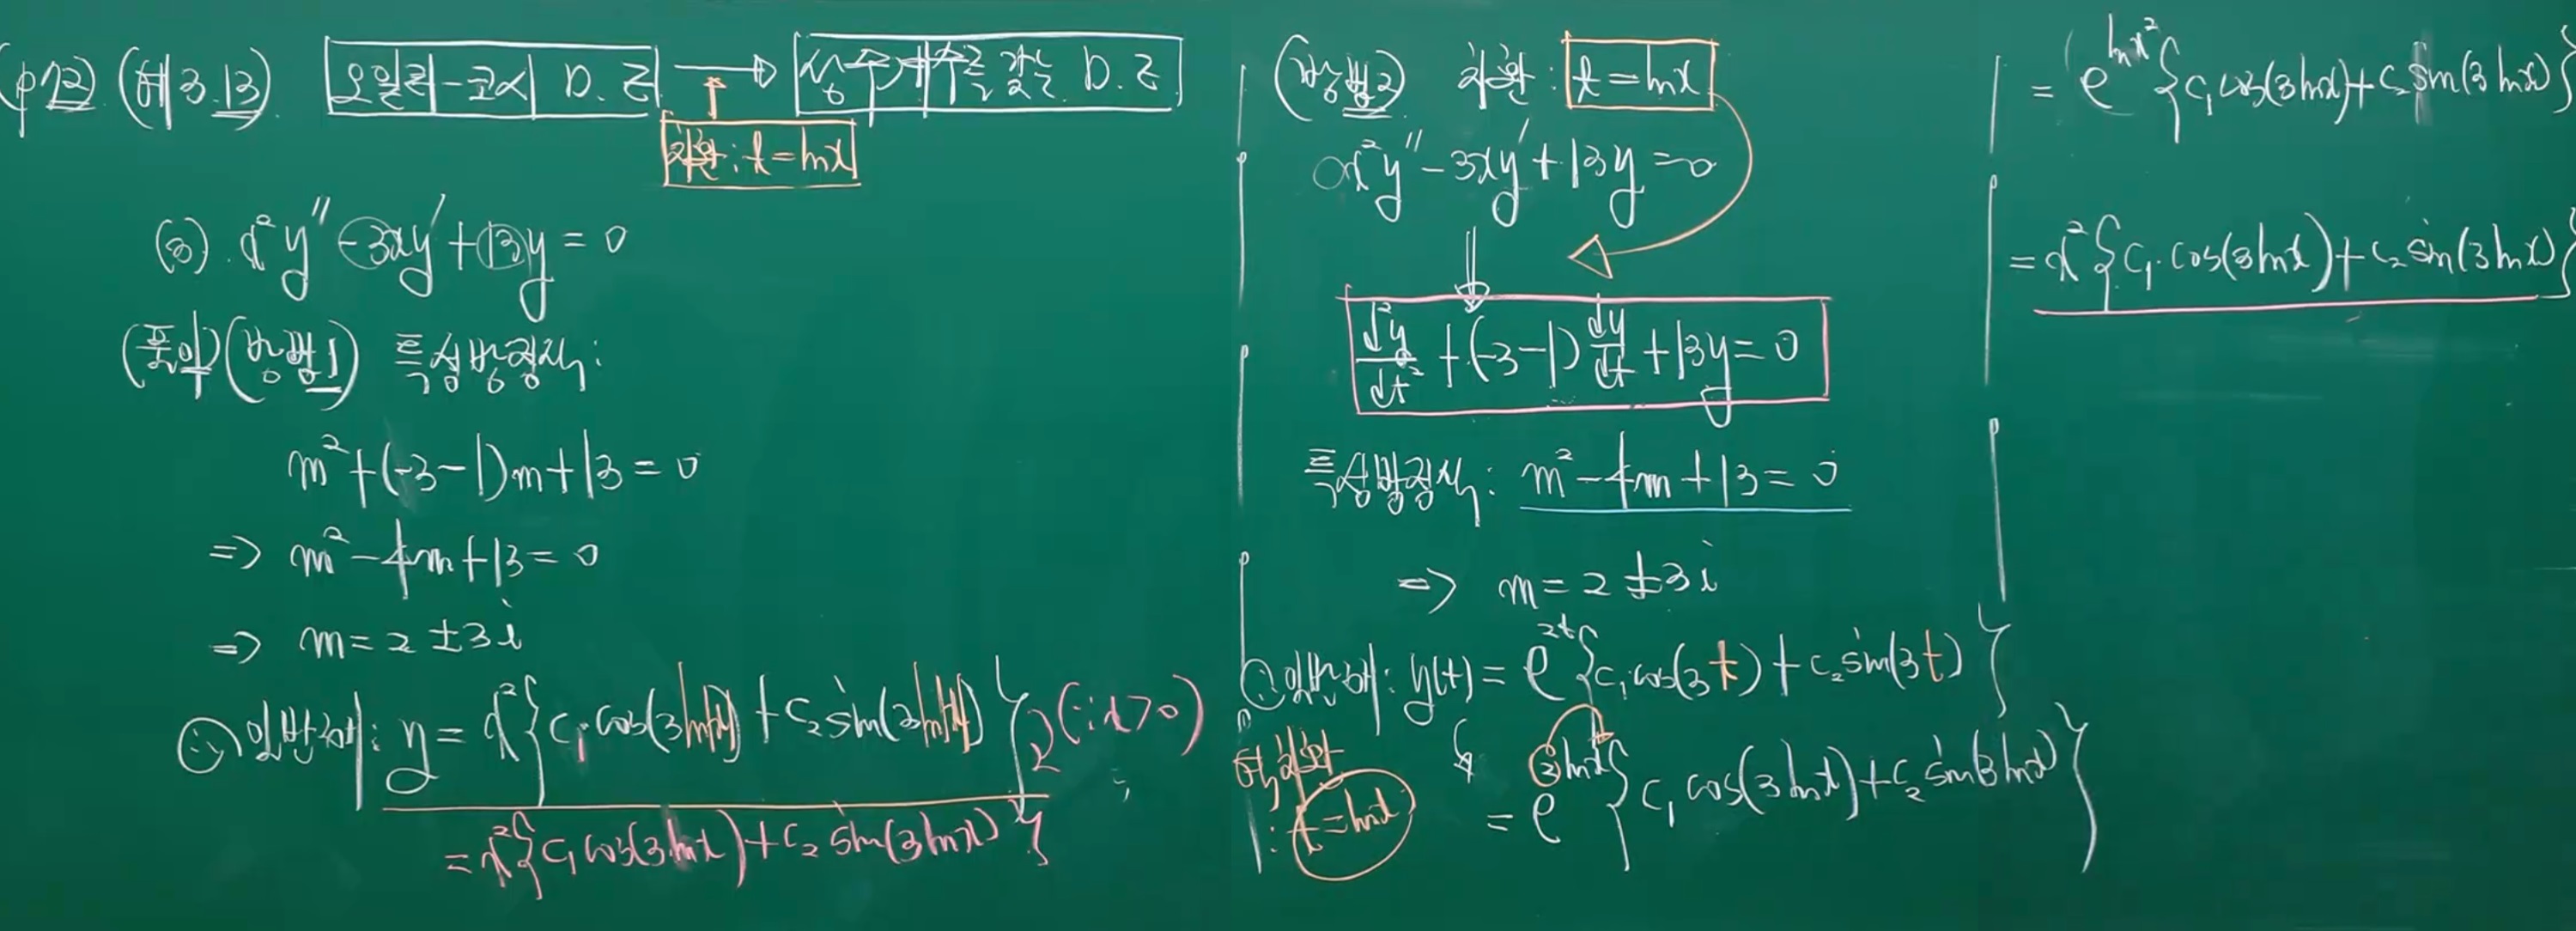 (p12) (예3.13) 오일러-코시 D.E → 상수계수를 갖는 D.E
치환: t=lnx
(3). x²y''-3xy'+13y=0
(풀이)(방법1) 특성방정식:
m²+(-3-1)m+13=0
=> m²-4m+13=0
=> m=2±3i
∴ 일반해: y=x²{c₁cos(3ln|x|)+c₂sin(3ln|x|)} (∵x>0)
=x²{c₁cos(3lnx)+c₂sin(3lnx)}
(방법2) 치환: t=lnx
x²y''-3xy'+13y=0
⇓
d²y/dt²+(-3-1)dy/dt+13y=0
특성방정식: m²-4m+13=0
=> m=2±3i
∴ 일반해: y(t)=e^{2t}{c₁cos(3t)+c₂sin(3t)}
역치환
: t=lnx
=e^{2lnx}{c₁cos(3lnx)+c₂sin(3lnx)}
=e^{lnx²}{c₁cos(3lnx)+c₂sin(3lnx)}
=x²{c₁·cos(3lnx)+c₂sin(3lnx)}